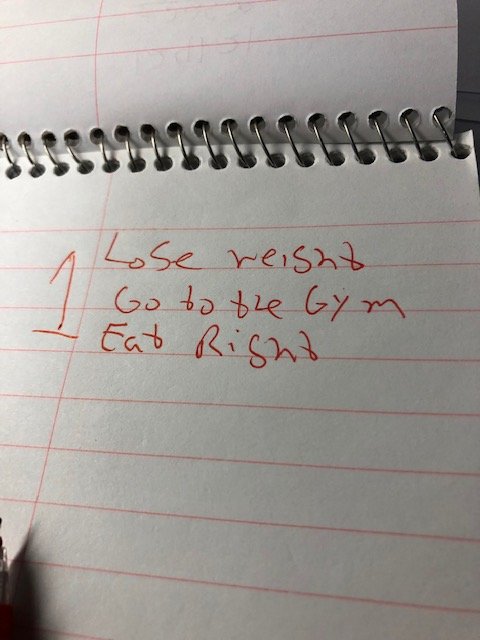 Lose weight
Go to the Gym
Eat Right